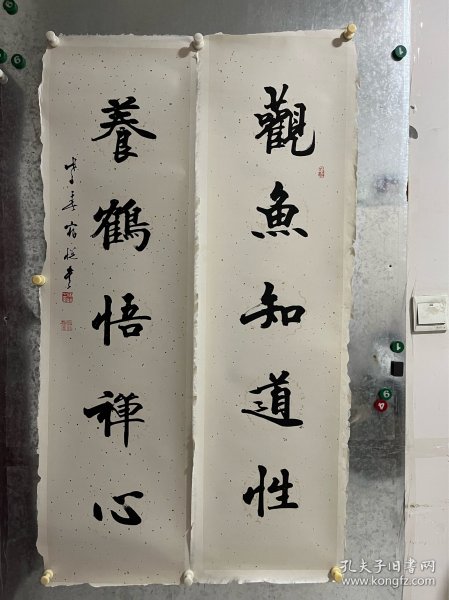 觀魚知道性
養鶴悟禪心
孔夫子旧书网
www.kongfz.com